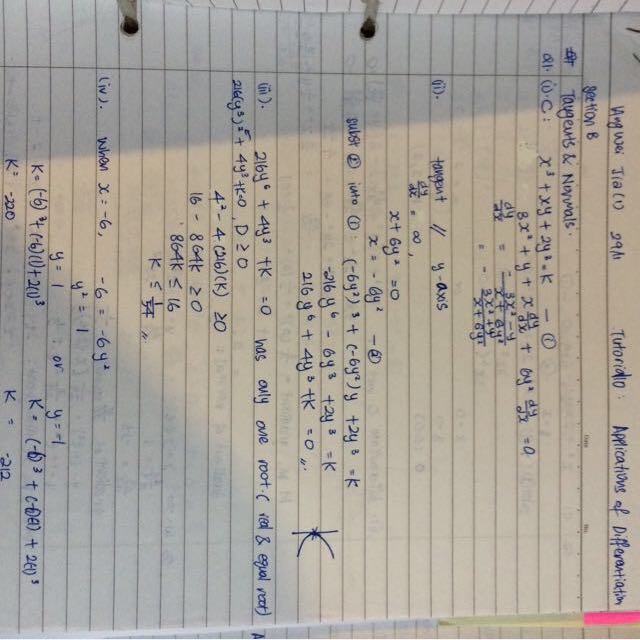 Ang Wei Jia (1) 29/11 Tutorial 10: Applications of Differentiation
Section B
Tangents & Normals.
Q1. (i). C: x³ + xy + 2y³ = K — ①
3x² + y + x dy/dx + 6y² dy/dx = 0
dy/dx = -3x² - y / x + 6y²
= - 3x² + y / x + 6y²
(ii). tangent // y axis
dy/dx = ∞,
x + 6y² = 0
x = - 6y² — ②
subst ② into ①: (-6y²)³ + (-6y²)y + 2y³ = K
-216y⁶ - 6y³ + 2y³ = K
216y⁶ + 4y³ + K = 0 „
(iii). 216y⁶ + 4y³ + K = 0 has only one root. (real & equal root)
216(y³)² + 4y³ + K = 0, D ≥ 0
4² - 4(216)(K) ≥ 0
16 - 864K ≥ 0
864K ≤ 16
K ≤ 1/54 „
(iv). When x = -6, -6 = -6y²
y² = 1
y = 1 or y = -1
K = (-6)³ + (-6)(1) + 2(1)³ K = (-6)³ + (-6)(-1) + 2(-1)³
K = -220 K = -212